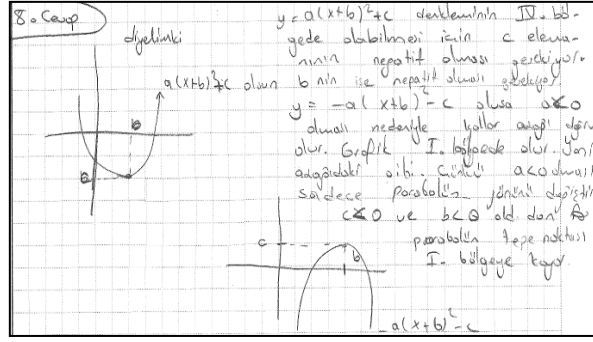 8. Cevap
diyelimki
y = a(x+b)²+c denkleminin IV. böl-
gede olabilmesi için c elema-
nının negatif olması gerekiyor.
a(x+b)²+c olsun b nin ise negatif olması gerekiyor
y = -a(x+b)²-c olusa a<0
olması nedeniyle kollar aşağı doğru
olur. Grafik I. bölgede olur. Yani
aşağıdaki gibi. Çünkü a<0 olması
sadece parabolün yönünü değiştir
c<0 ve b<0 old. dan
parabolün tepe noktası
I. bölgeye kayar.
b
c
b
-a(x+b)²-c